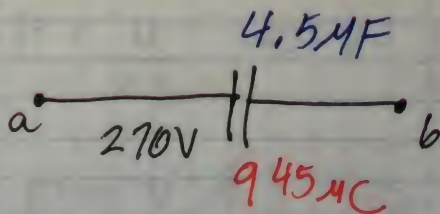 4.5µF
a
270V
b
945µC